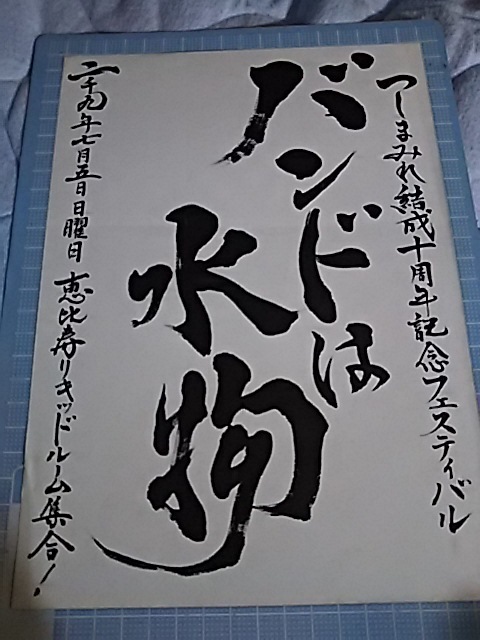 つしまみれ結成十周年記念フェスティバル
バンドは
水物
二千九年七月五日日曜日 恵比寿リキッドルーム集合!